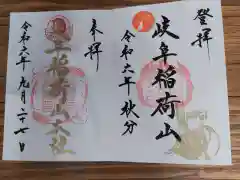 登拝
岐阜稲荷山
令和六年 秋分
奉拝
稲荷山大社
令和六年九月二十七日